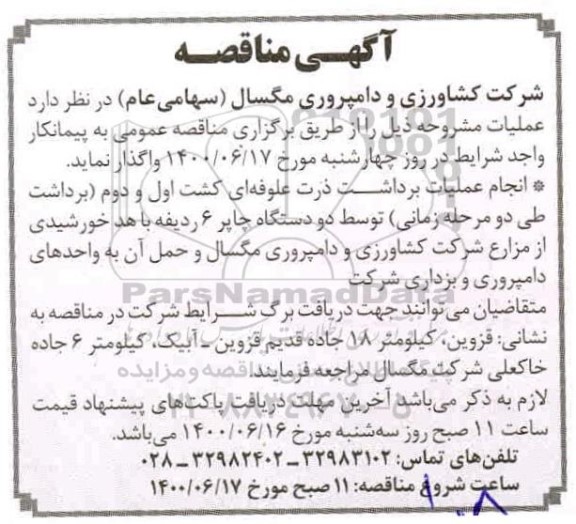 آگهی مناقصه
شرکت کشاورزی و دامپروری مگسال (سهامی عام) در نظر دارد
عملیات مشروحه ذیل را از طریق برگزاری مناقصه عمومی به پیمانکار
واجد شرایط در روز چهارشنبه مورخ ۱۴۰۰/۰۶/۱۷ واگذار نماید.
* انجام عملیات برداشت ذرت علوفه‌ای کشت اول و دوم (برداشت
طی دو مرحله زمانی) توسط دو دستگاه چاپر ۶ ردیفه با هد خورشیدی
از مزارع شرکت کشاورزی و دامپروری مگسال و حمل آن به واحدهای
دامپروری و بزداری شرکت
ParsNamadData
متقاضیان می‌توانند جهت دریافت برگ شرایط شرکت در مناقصه به
نشانی: قزوین، کیلومتر ۱۸ جاده قدیم قزوین ـ آبیک، کیلومتر ۶ جاده
خاکعلی شرکت مگسال مراجعه فرمایند.
لازم به ذکر می‌باشد آخرین مهلت دریافت پاکت‌های پیشنهاد قیمت
ساعت ۱۱ صبح روز سه‌شنبه مورخ ۱۴۰۰/۰۶/۱۶ می‌باشد.
تلفن‌های تماس: ۳۲۹۸۳۱۰۲ ـ ۳۲۹۸۲۴۰۲ ـ ۰۲۸
ساعت شروع مناقصه: ۱۱ صبح مورخ ۱۴۰۰/۰۶/۱۷